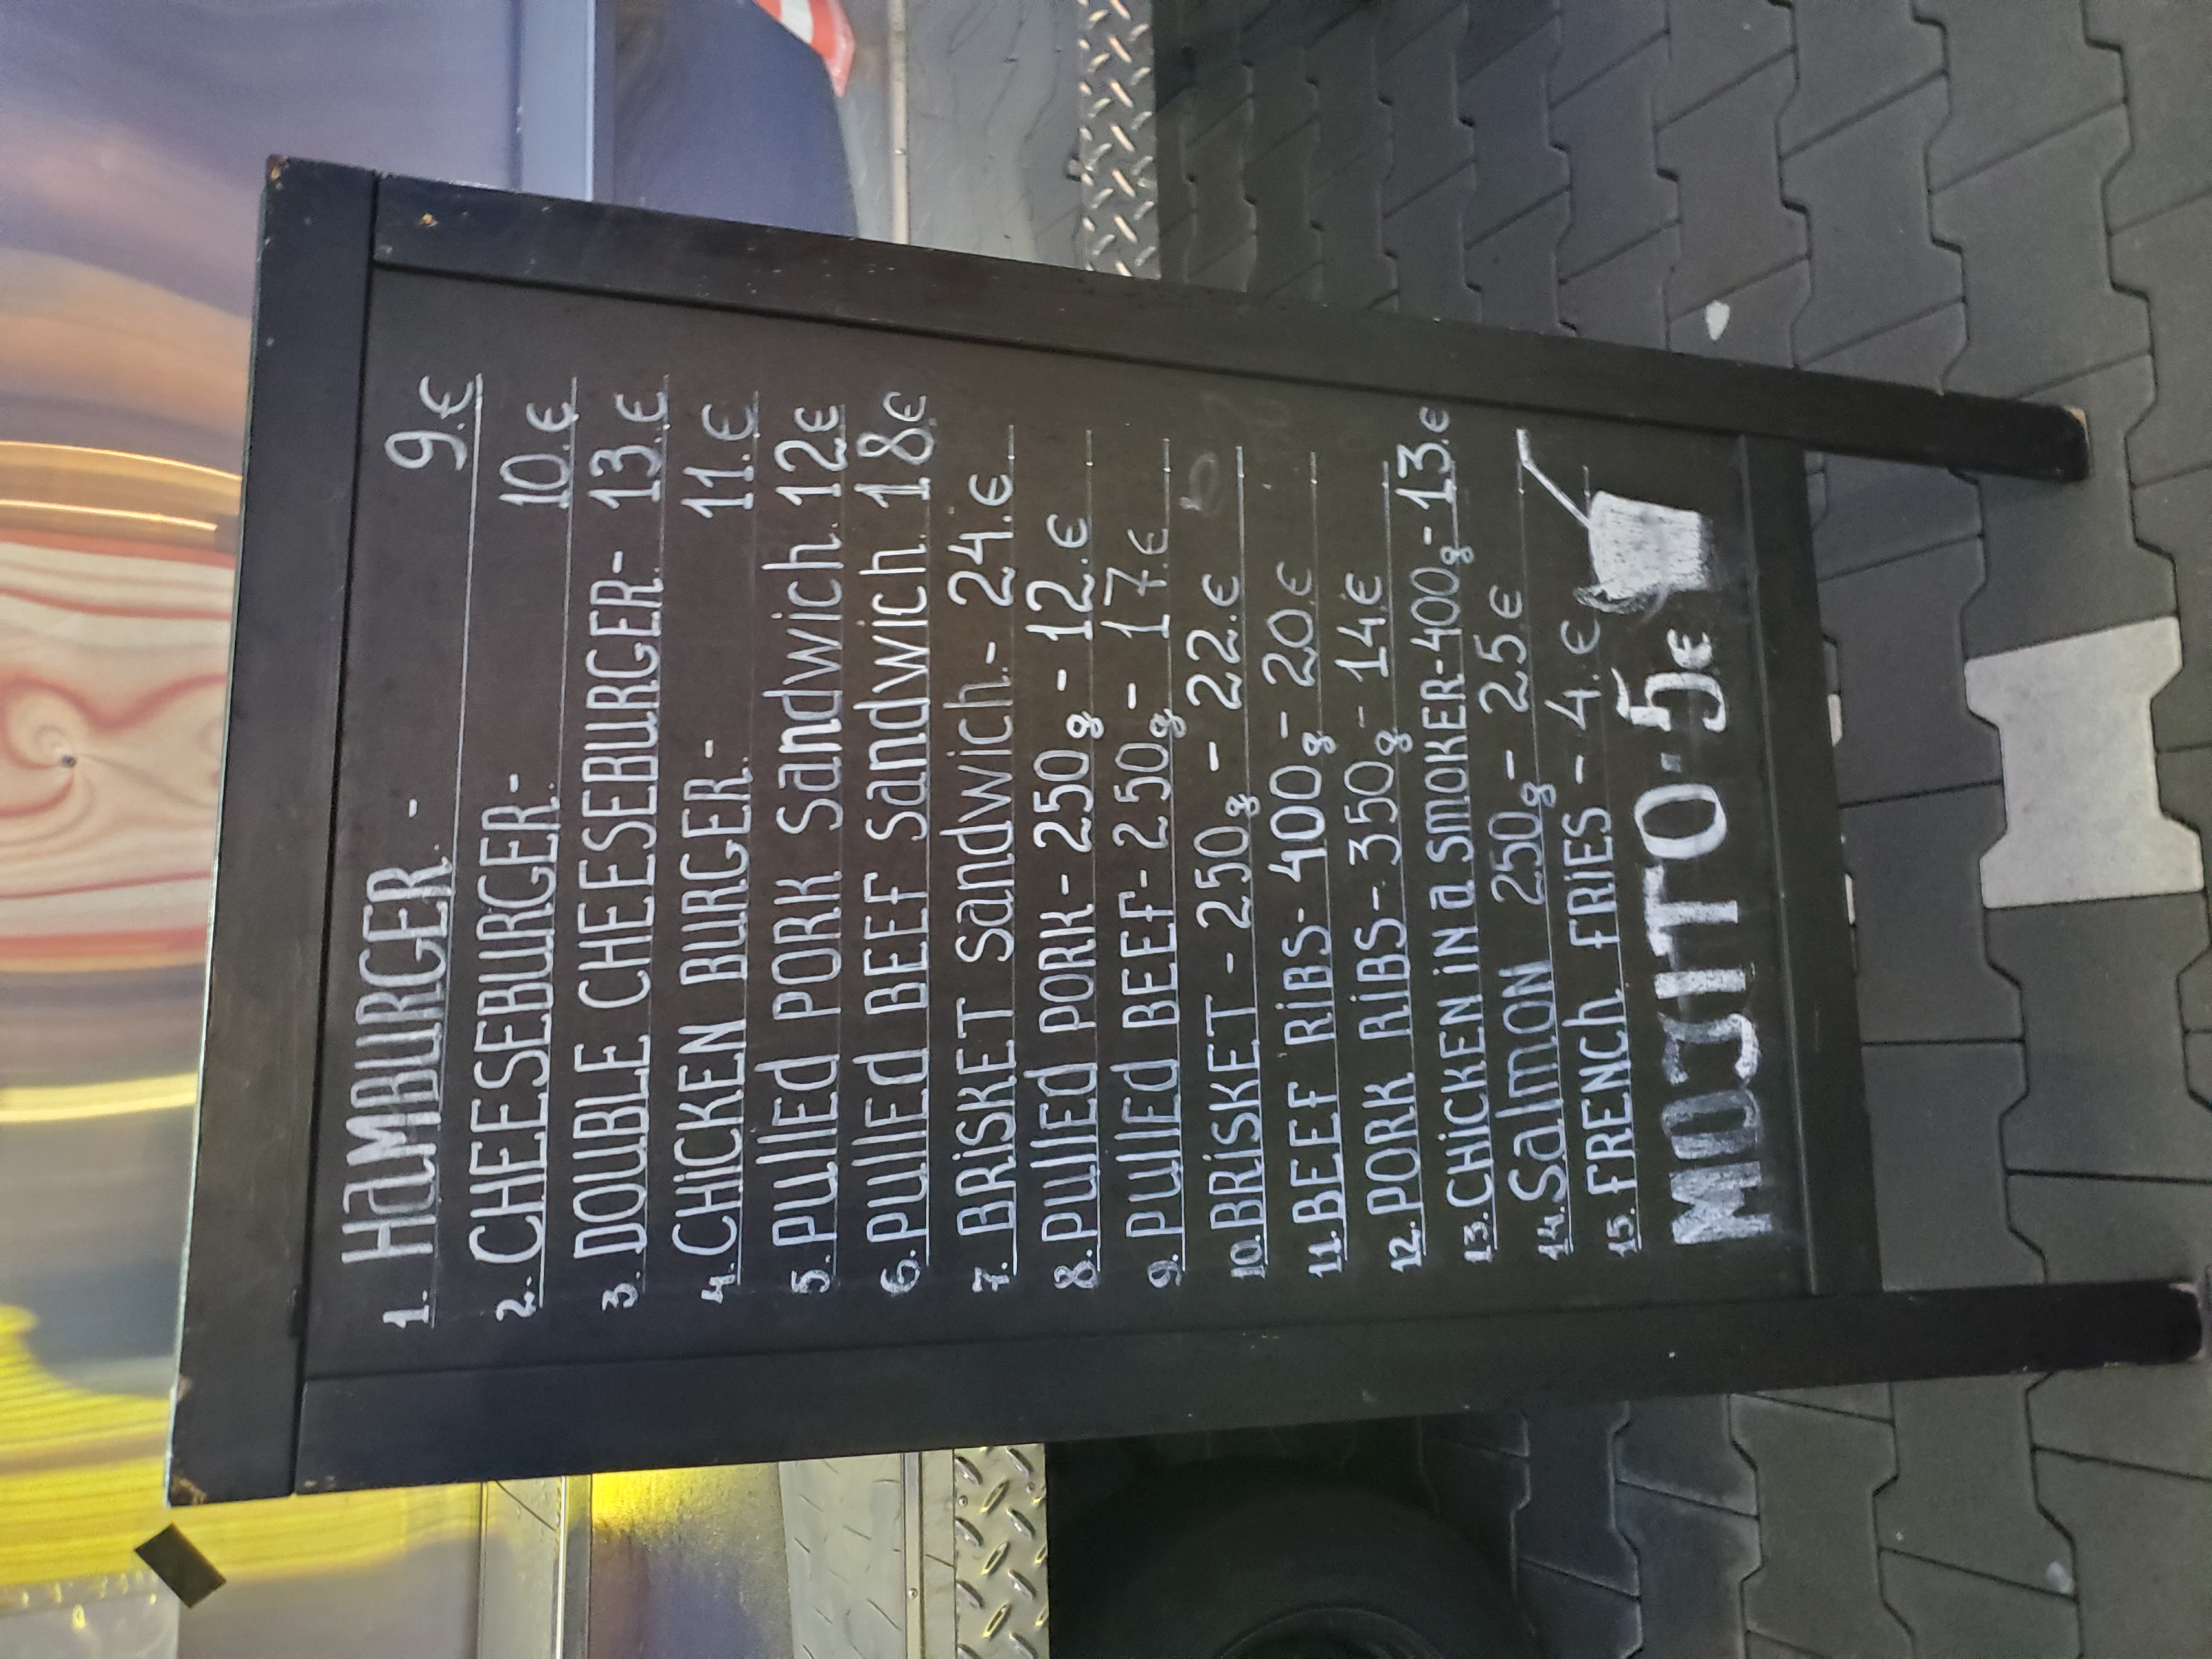 1. HAMBURGER.- 9.€
2. CHEESEBURGER.- 10.€
3. DOUBLE CHEESEBURGER- 13.€
4. CHiCKEN BURGER.- 11.€
5. PullEd PORK Sandwich. 12€
6. PullEd BEEF Sandwich. 18€
7. BRiSKET Sandwich.- 24.€
8. PullEd PORK- 250g - 12.€
9. PullEd BEEF- 250g - 17.€
10. BRiSKET - 250g - 22.€
11. BEEF RiBS- 400g - 20.€
12. PORK RiBS- 350g - 14.€
13. CHiCKEN iN a SMOKER-400g- 13.€
14. Salmon 250g- 25€
15. FRENCh FRiES - 4.€
MOJITO-5€